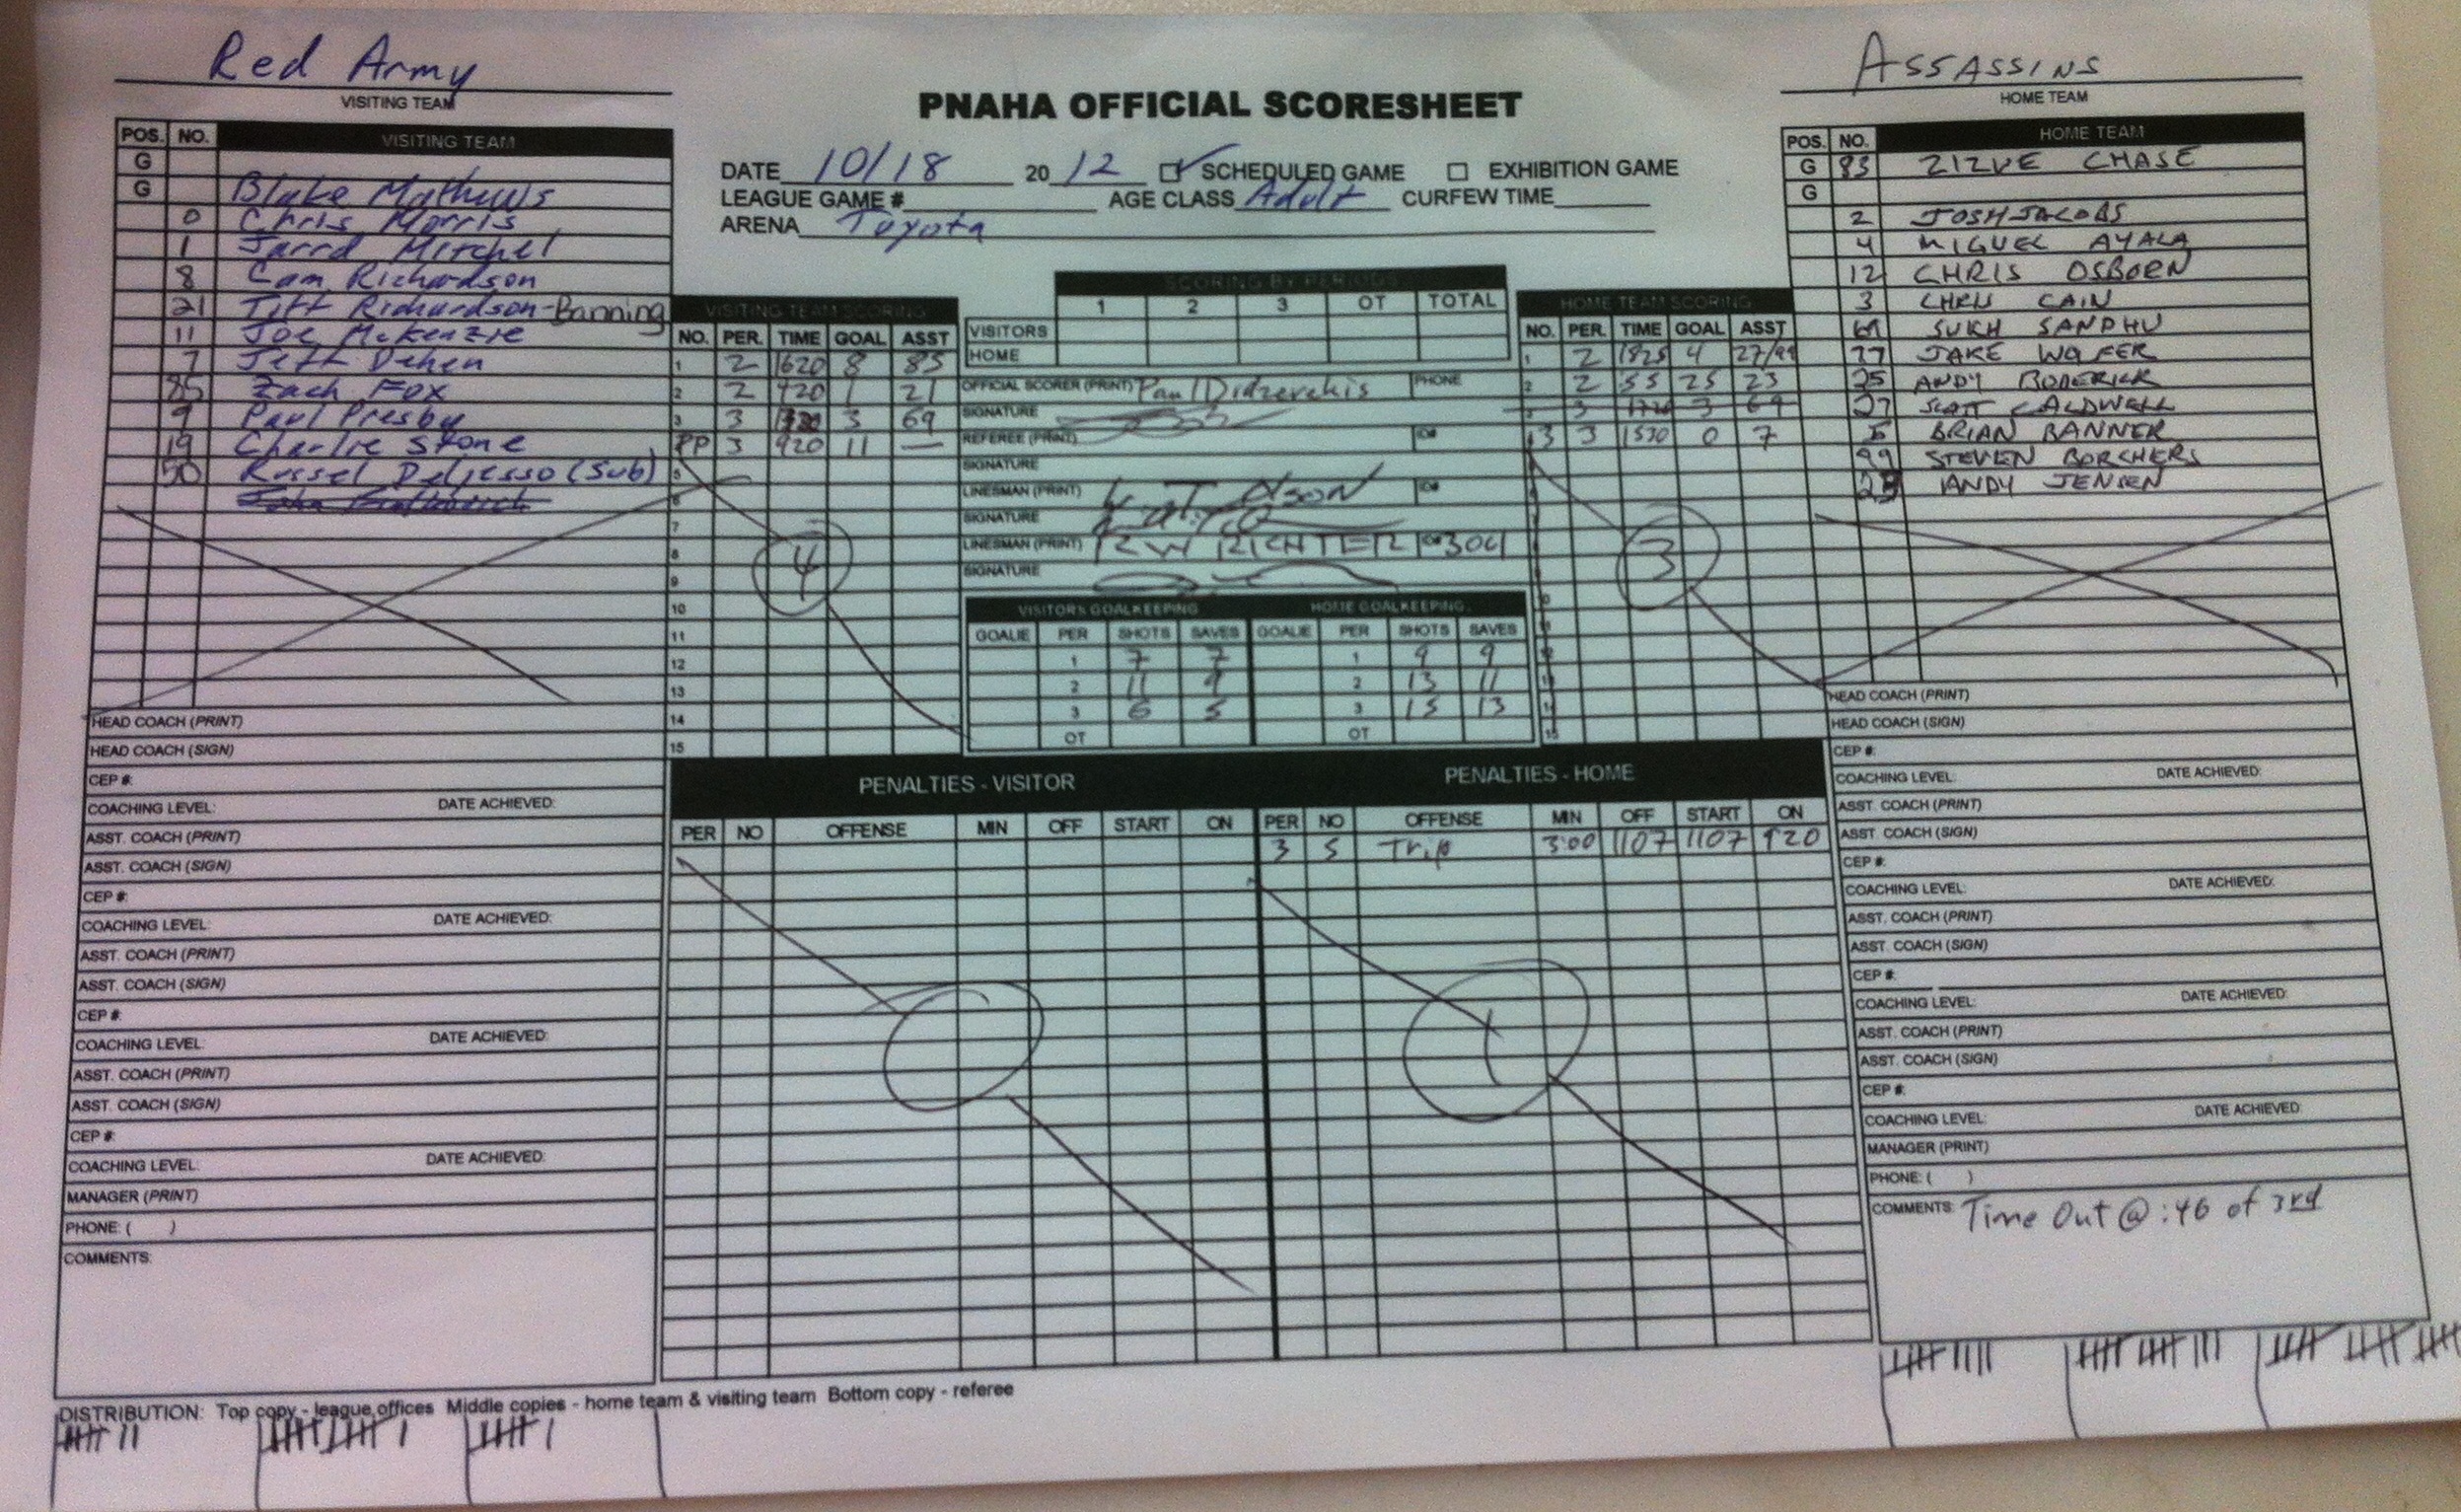 Red Army
VISITING TEAM
ASSASSINS
HOME TEAM
PNAHA OFFICIAL SCORESHEET
DATE 10/18 2012 SCHEDULED GAME EXHIBITION GAME
LEAGUE GAME # AGE CLASS Adult CURFEW TIME
ARENA Toyota
POS. NO. VISITING TEAM
G
G Blake Mathews
0 Chris Morris
1 Jarrd Mitchel
8 Cam Richardson
21 Tiff Richardson-Banning
11 Joe McKenzie
7 Jeff Dehen
85 Zach Fox
9 Paul Presby
19 Charlie Stone
50 Russel Deljesso (Sub)
HEAD COACH (PRINT)
HEAD COACH (SIGN)
CEP #:
COACHING LEVEL: DATE ACHIEVED:
ASST. COACH (PRINT)
ASST. COACH (SIGN)
CEP #:
COACHING LEVEL: DATE ACHIEVED:
ASST. COACH (PRINT)
ASST. COACH (SIGN)
CEP #:
COACHING LEVEL: DATE ACHIEVED:
ASST. COACH (PRINT)
ASST. COACH (SIGN)
CEP #:
COACHING LEVEL: DATE ACHIEVED:
MANAGER (PRINT)
PHONE: ( )
COMMENTS:
VISITING TEAM SCORING
NO. PER. TIME GOAL ASST
1 2 1620 8 85
2 2 420 1 21
3 3 69
PP 3 920 11 —
5
6
7
8
9
10
11
12
13
14
15
4
SCORING BY PERIODS
1 2 3 OT TOTAL
VISITORS
HOME
OFFICIAL SCORER (PRINT) Paul Didzerekis PHONE
SIGNATURE
REFEREE (PRINT) ID#
SIGNATURE
LINESMAN (PRINT) ID#
SIGNATURE
LINESMAN (PRINT) RW RICHTER ID# 304
SIGNATURE
VISITORS GOALKEEPING HOME GOALKEEPING
GOALIE PER SHOTS SAVES GOALIE PER SHOTS SAVES
1 7 7 1 9 9
2 11 9 2 13 11
3 6 5 3 15 13
OT OT
HOME TEAM SCORING
NO. PER. TIME GOAL ASST
1 2 1825 4 27/99
2 2 :55 25 23
3 3 69
3 3 1530 0 7
3
POS. NO. HOME TEAM
G 83 ZIZUE CHASE
G
2 JOSH JACOBS
4 MIGUEL AYALA
12 CHRIS OSBORN
3 CHRIS CAIN
69 SUKH SANDHU
77 JAKE WAFER
25 ANDY RODERICK
27 SCOTT CALDWELL
5 BRIAN BANNER
99 STEVEN BORCHERS
23 ANDY JENSEN
HEAD COACH (PRINT)
HEAD COACH (SIGN)
CEP #:
COACHING LEVEL: DATE ACHIEVED:
ASST. COACH (PRINT)
ASST. COACH (SIGN)
CEP #:
COACHING LEVEL: DATE ACHIEVED:
ASST. COACH (PRINT)
ASST. COACH (SIGN)
CEP #:
COACHING LEVEL: DATE ACHIEVED:
ASST. COACH (PRINT)
ASST. COACH (SIGN)
CEP #:
COACHING LEVEL: DATE ACHIEVED:
MANAGER (PRINT)
PHONE: ( )
COMMENTS: Time Out @ :46 of 3rd
PENALTIES - VISITOR PENALTIES - HOME
PER NO OFFENSE MIN OFF START ON PER NO OFFENSE MIN OFF START ON
3 5 Trip 3:00 1107 1107 920
1
DISTRIBUTION: Top copy - league offices Middle copies - home team & visiting team Bottom copy - referee